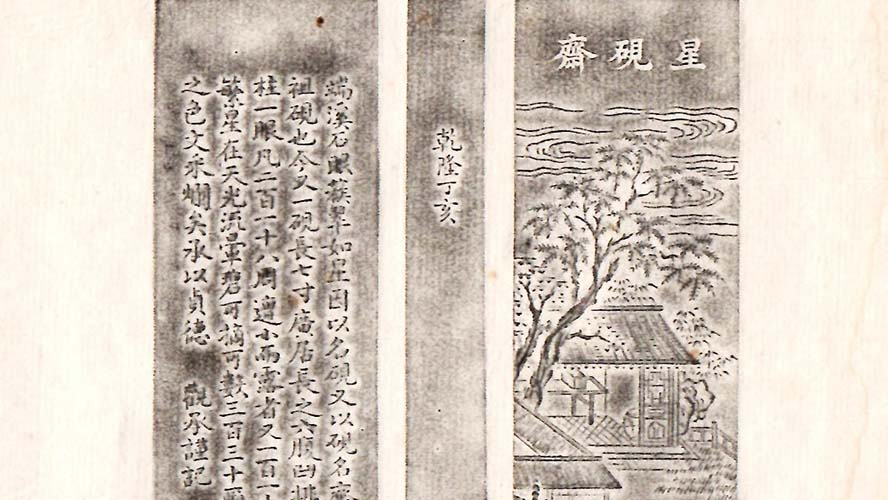 星硯齋
乾隆丁亥
端溪石眼簇翠如星因以名硯又以硯名齋
祖硯也今又一硯長七寸廣居長之六腹凹
柱一眼凡二百一十八周遭小而露者又一百一
繁星在天光流暈碧可摘可數三百三十
之色文采爛矣承以貞德 觀承謹記